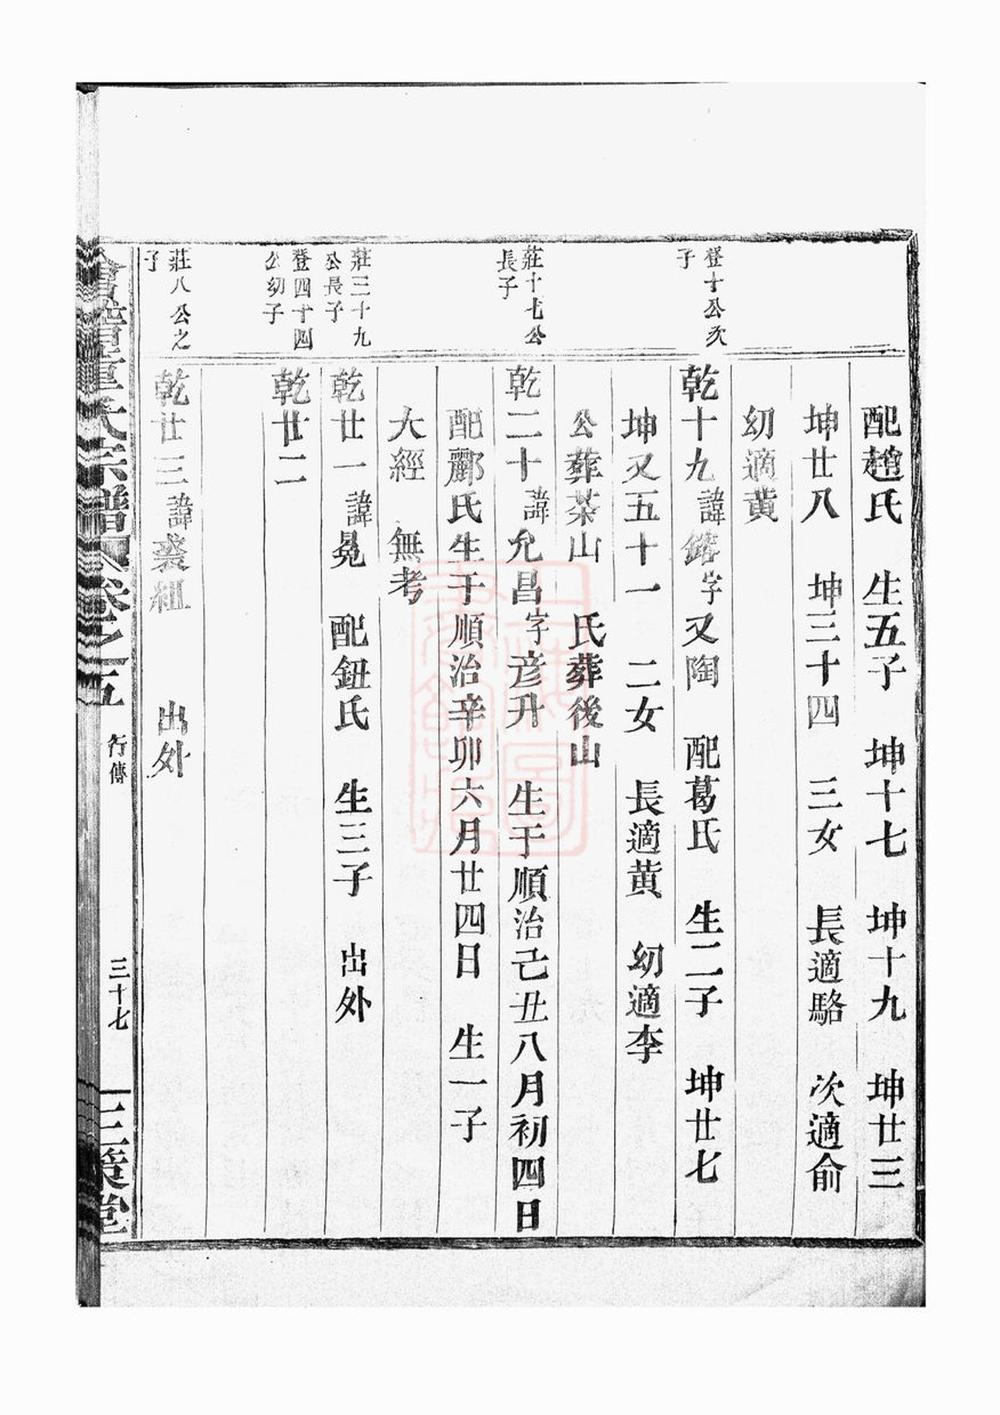 配趙氏　生五子　坤十七　坤十九　坤廿三
坤廿八　坤三十四　三女　長適駱　次適俞
幼適黃
登十公次子
乾十九諱字又陶　配葛氏　生二子　坤廿七
坤又五十一　二女　長適黃　幼適李
公葬茶山　氏葬後山
莊十七公長子
乾二十諱允昌字彥升　生于順治己丑八月初四日
配酈氏生于順治辛卯六月廿四日　生一子
大經　無考
莊三十九公長子
乾廿一諱晃　配鈕氏　生三子　出外
登四十四公幼子
乾廿二
莊八公之子
乾廿三諱裘組　出外
會稽董氏宗譜　卷之五　行傳　三十七　三策堂